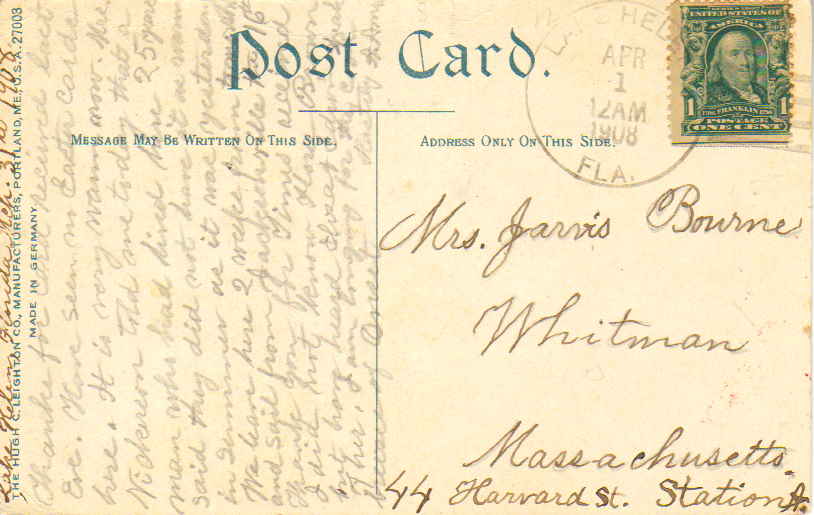 Post Card.
MESSAGE MAY BE WRITTEN ON THIS SIDE.
ADDRESS ONLY ON THIS SIDE.
THE HUGH C. LEIGHTON CO., MANUFACTURERS, PORTLAND, ME., U.S.A. 27003
MADE IN GERMANY
Lake Helen, Florida, Mch. 31st 1908
Thanks for card recieved last
Eve. Have seen no Easter cards
here. It is very warm now. Mr.
Nickerson told me today that a
man who had lived here 25 years
said they did not have it as warm
in summer as it was yesterday.
We leave here 2 weeks from
and sail from Jacksonville the 16th
Thank you for Times
I did not know Flora
but have heard
this. I am longing for
LAKE HELEN
APR
1
12AM
1908
FLA.
UNITED STATES OF AMERICA
1
1
FRANKLIN
POSTAGE
ONE CENT
Mrs. Jarvis Bourne
Whitman
Massachusetts
44 Harvard St. Station A.